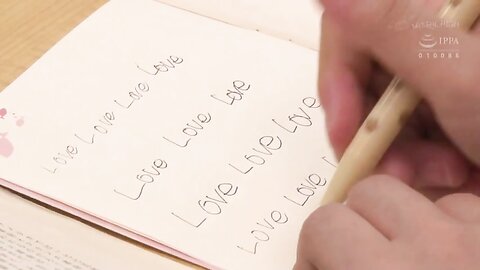 Love Love Love Love
Love Love Love
Love Love Love
Love Love
IPPA
010086